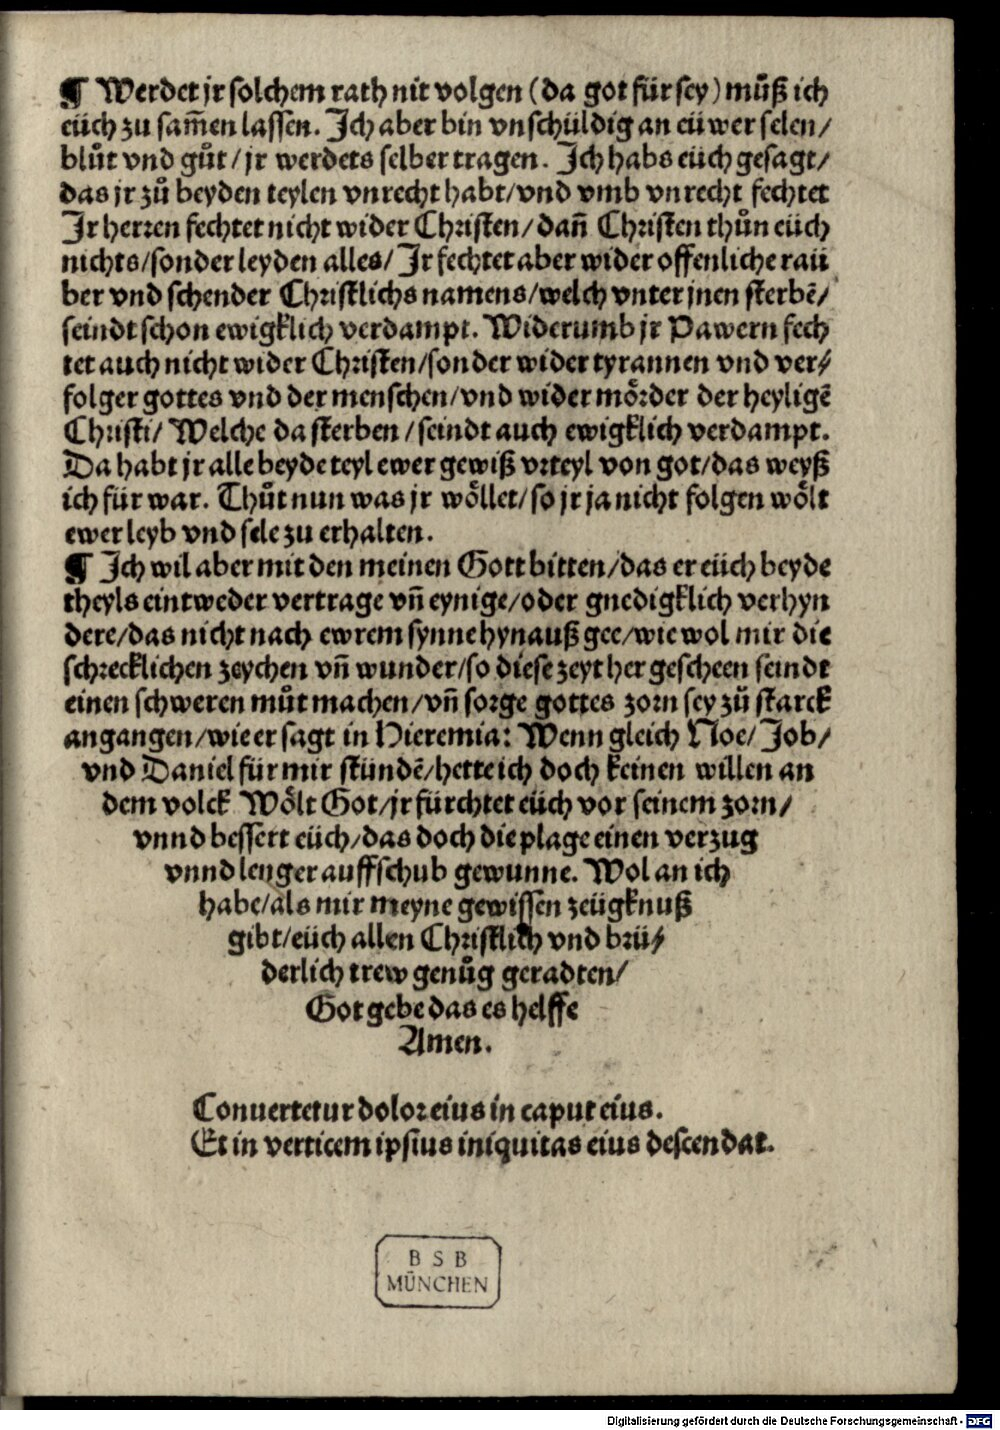 ¶ Werdet jr solchem rath nit volgen (da got für sey) můß ich
eüch zu sam̄en lassen. Ich aber bin vnschüldig an eüwer selen/
blůt vnd gůt/ jr werdets selber tragen. Ich habs eüch gesagt/
das jr zů beyden teylen vnrecht habt/vnd vmb vnrecht fechtet
Ir herren fechtet nicht wider Christen/dan̄ Christen thůn eüch
nichts/sonder leyden alles/ Ir fechtet aber wider offenliche raü
ber vnd schender Christlichs namens/welch vnter jnen sterbē/
seindt schon ewigklich verdampt. Widerumb jr Pawern fech
tet auch nicht wider Christen/sonder wider tyrannen vnd ver⸗
folger gottes vnd der menschen/vnd wider mörder der heyligē
Christi/ Welche da sterben/seindt auch ewigklich verdampt.
Da habt jr alle beyde teyl ewer gewiß vrteyl von got/das weyß
ich für war. Thůt nun was jr wöllet/so jr ja nicht folgen wölt
ewer leyb vnd sele zu erhalten.
¶ Ich wil aber mit den meinen Gott bitten/das er eüch beyde
theyls eintweder vertrage vn̄ eynige/oder gnedigklich verhyn
dere/das nicht nach ewrem synne hynauß gee/wie wol mir die
schrecklichen zeychen vn̄ wunder/so diese zeyt her gescheen seindt
einen schweren můt machen/vn̄ sorge gottes zorn sey zů starck
angangen/wie er sagt in Hieremia: Wenn gleich Noe/ Job/
vnd Daniel für mir stündē/hette ich doch keinen willen an
dem volck Wölt Got/jr fürchtet eüch vor seinem zorn/
vnnd bessert eüch/das doch die plage einen verzug
vnnd lenger auffschub gewunne. Wol an ich
habe/als mir meyne gewissen zeügknuß
gibt/eüch allen Christlich vnd brü⸗
derlich trew genůg geradten/
Got gebe das es helffe
Amen.
Conuertetur dolor eius in caput eius.
Et in verticem ipsius iniquitas eius descendat.
B S B
MÜNCHEN
Digitalisierung gefördert durch die Deutsche Forschungsgemeinschaft - DFG